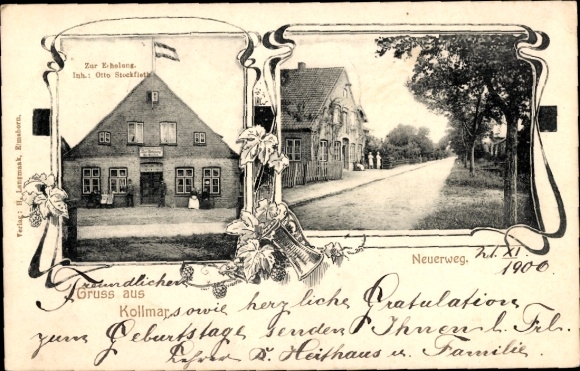 Zur Erholung.
Inh.: Otto Stockfleth
Verlag: H. Langmaak, Elmshorn.
Neuerweg.
21. XI.
1900.
Freundlichen
Gruss aus
Kollmar sowie herzliche Gratulation
zum Geburtstage senden Ihnen l. Frl.
Lehrer D. Heithaus u. Familie.